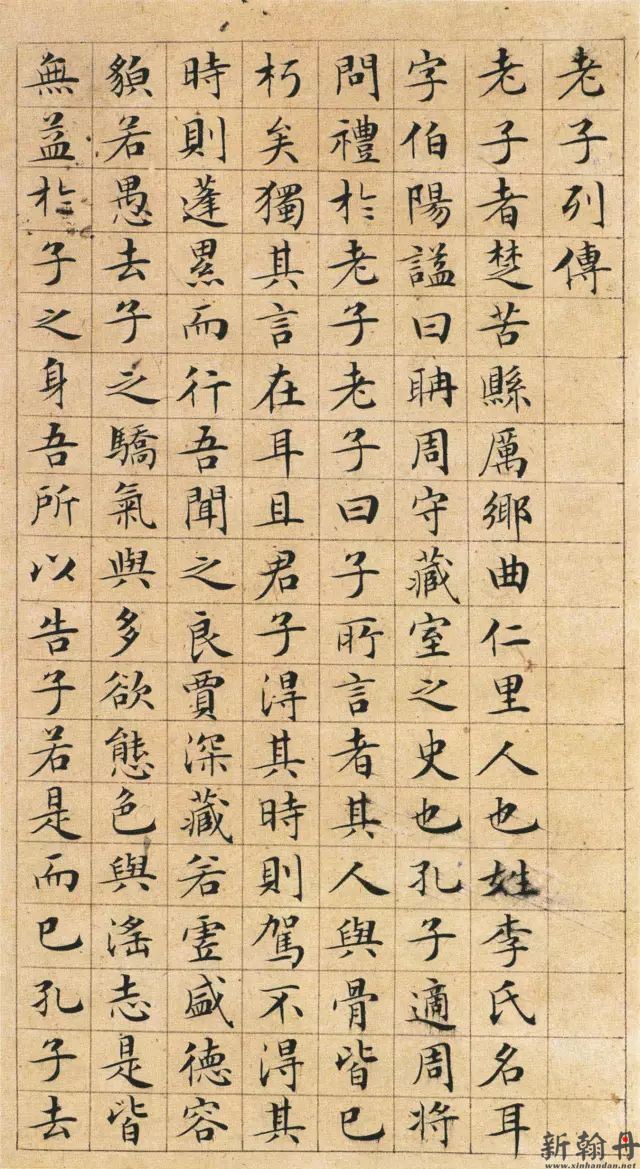 老子列傳
老子者楚苦縣厲鄉曲仁里人也姓李氏名耳
字伯陽謚曰聃周守藏室之史也孔子適周將
問禮於老子老子曰子所言者其人與骨皆已
朽矣獨其言在耳且君子得其時則駕不得其
時則蓬累而行吾聞之良賈深藏若虛盛德容
貌若愚去子之驕氣與多欲態色與淫志是皆
無益於子之身吾所以告子若是而已孔子去
新翰丹
www.xinhandan.net